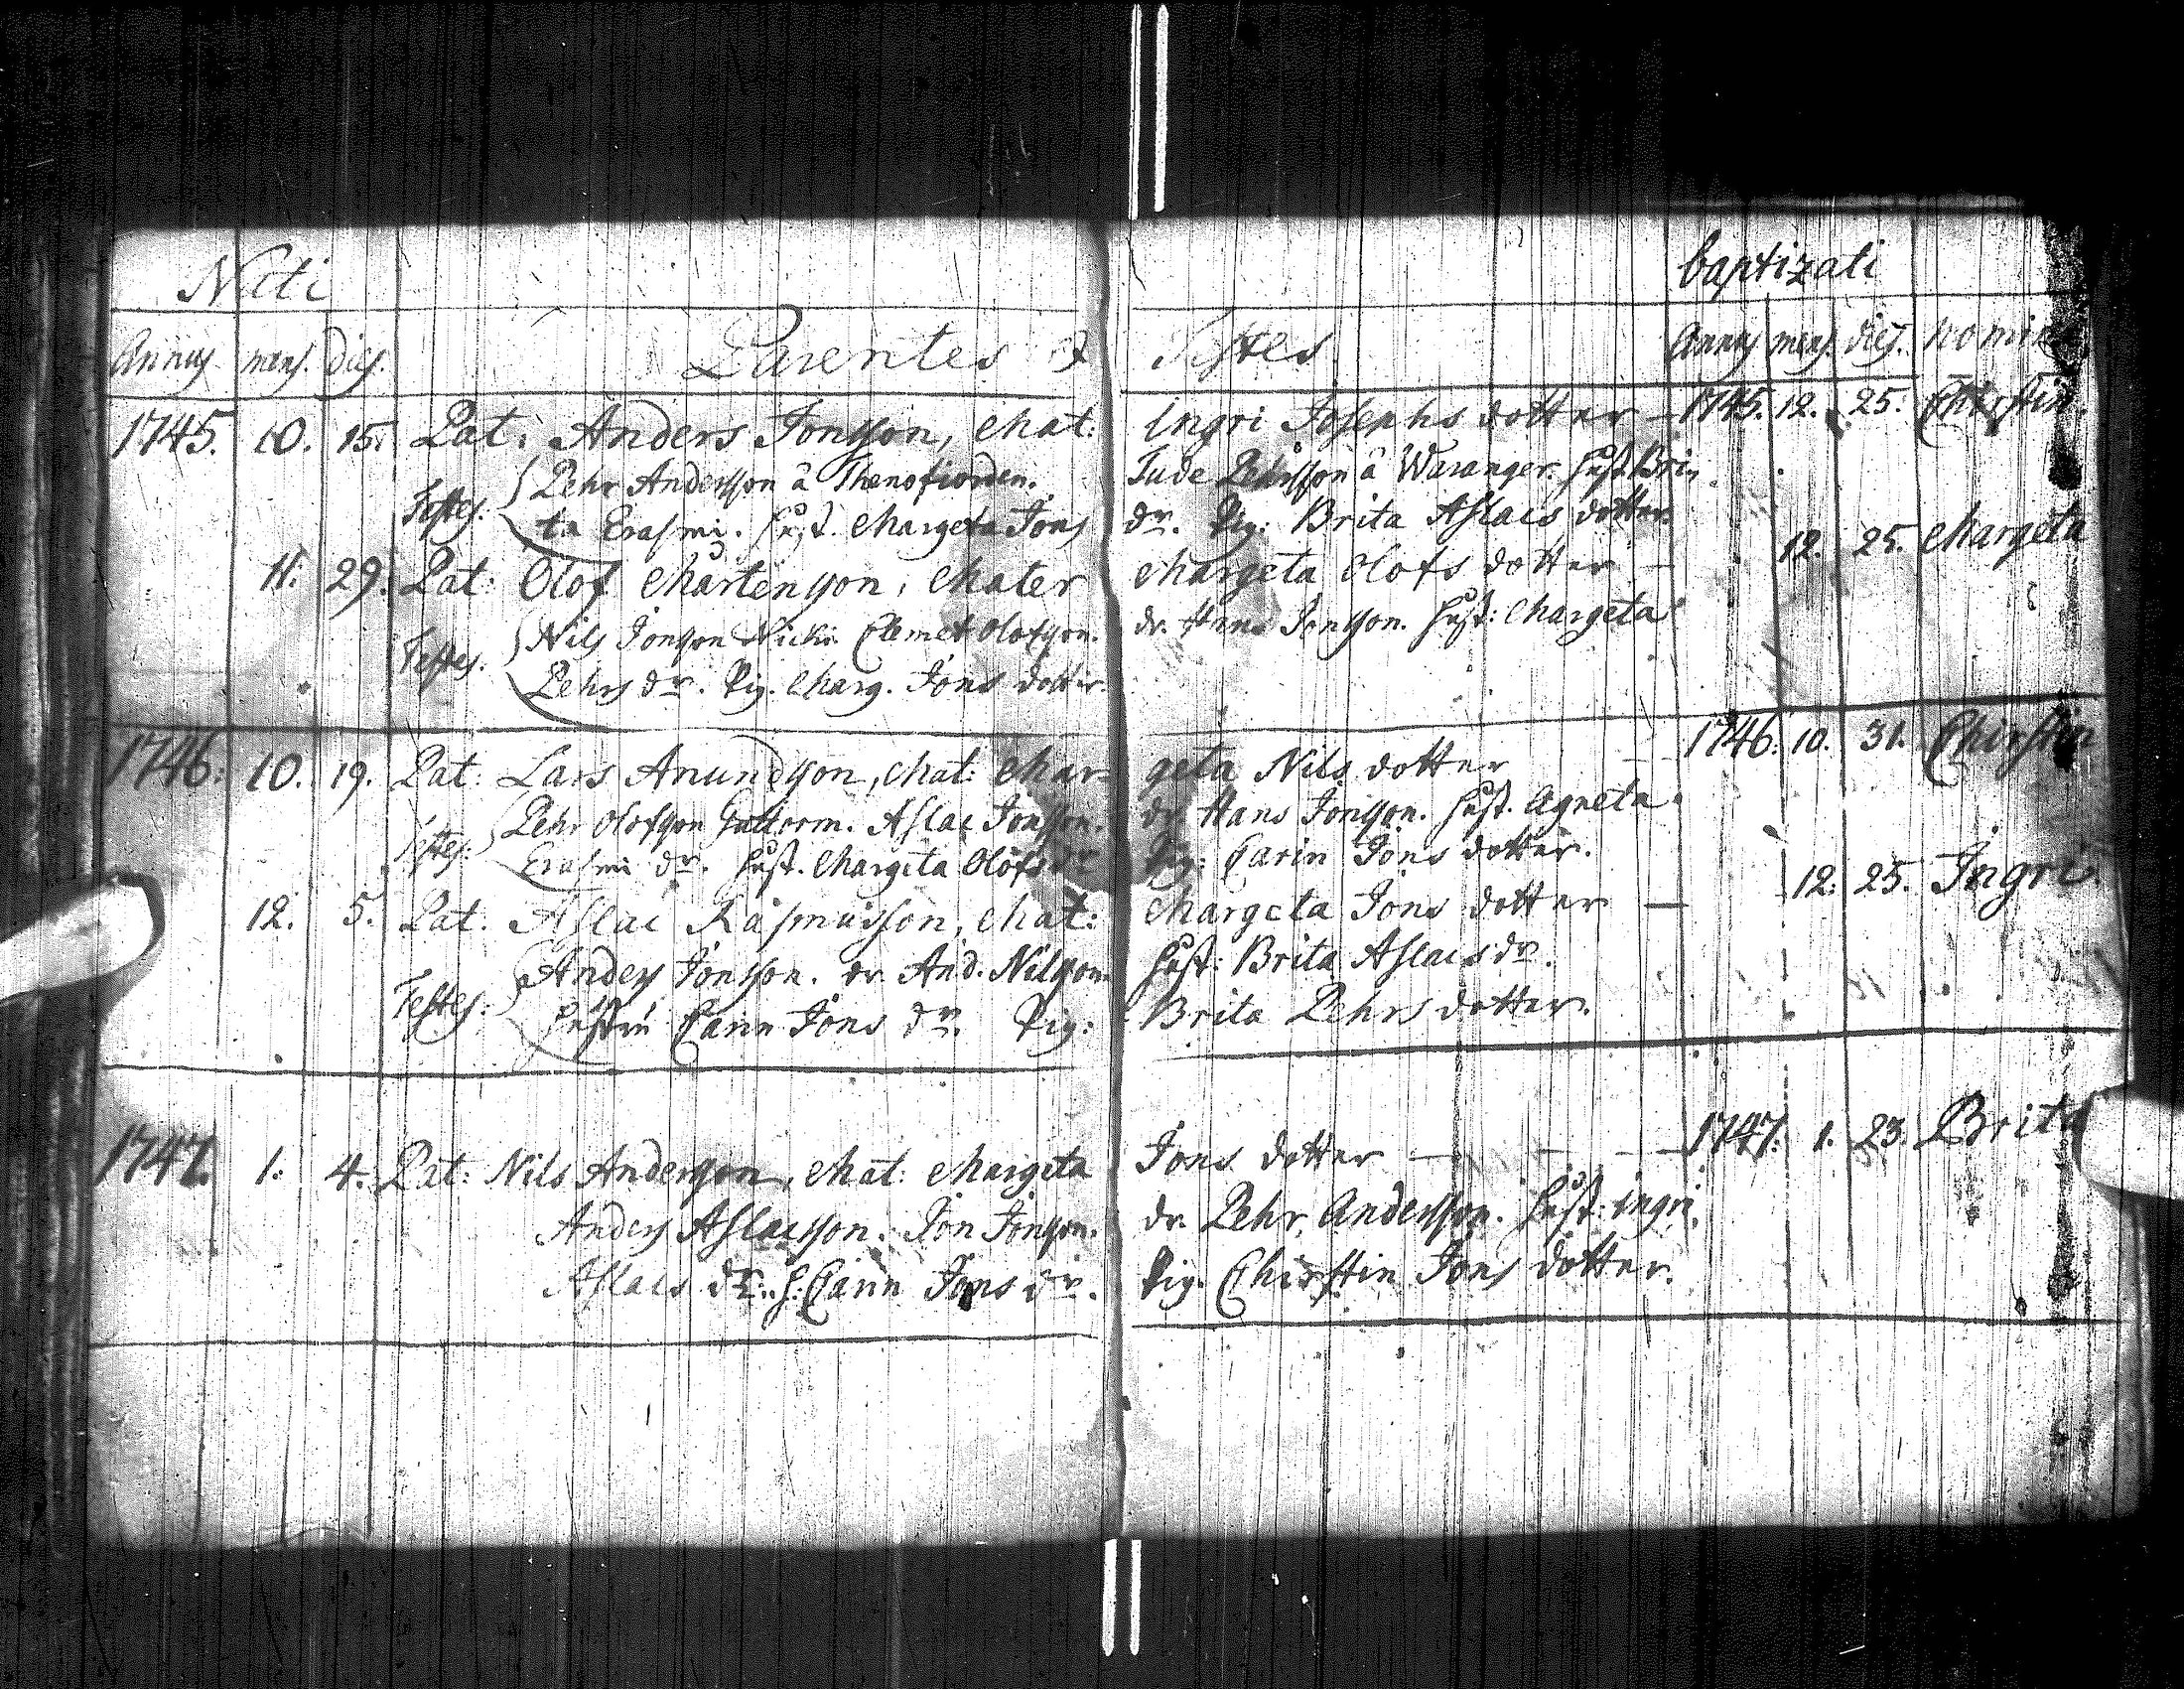 Nati baptizati
Annus mens. dies. Parentes & Testes Annus mens. dies. nomina
1745. 10. 15. Pat: Anders Jonsson, Mat: Ingri Josephs dotter — 1745. 12. 25. Chirstin.
Testes. Pehr Andersson â Thenofiorden. Jude Pehrsson â Waranger. Hust. Bri-
ta Erasmi. Hust. Margeta Jons dr. Pig: Brita Aslacs dotter.
11. 29. Pat: Olof Mårtensson, Mater Margeta Olofs dotter — 12. 25. Margeta
Testes. Nils Jonsson Clemet Olofsson. dr. Hans Jonsson. Hust: Margeta
Pehrs dr. Pig. Marg. Jons dotter.
1746: 10. 19. Pat: Lars Anundsson, Mat: Mar- geta Nils dotter — 1746: 10. 31. Chirstin
Testes: Pehr Olofsson Guttorm. Aslac Jonsson. dr. Hans Jonsson. Hust. Agneta
Erasmi dr. Hust. Margeta Olofs dr. Pig: Carin Jons dotter.
12. 5. Pat: Aslac Rasmusson, Mat: Margeta Jons dotter — 12: 25. Ingri.
Testes: Anders Jonsson. dr. And. Nilsson. Hust: Brita Aslacs dr.
Hustru Carin Jons dr. Pig: Brita Pehrs dotter.
1747. 1: 4. Pat: Nils Andersson, Mat: Margeta Jons dotter — 1747: 1. 23. Brita
Anders Aslacsson. Jon Jonsson. dr. Pehr Andersson. Hust: Ingri
Aslacs dr. H: Carin Jons dr. Pig. Chirstin Jons dotter.